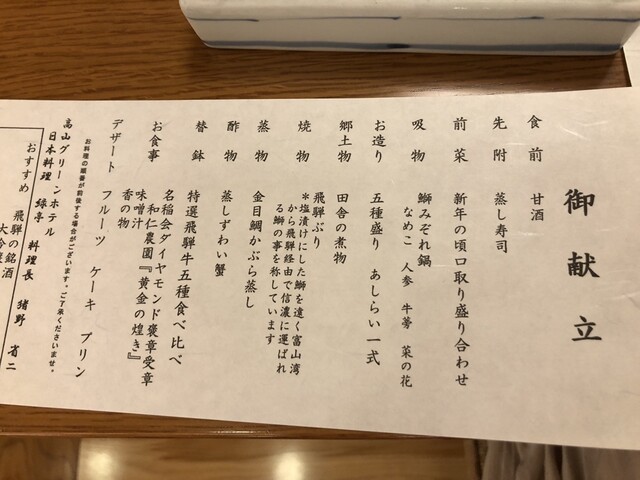 御献立
食前　甘酒
先附　蒸し寿司
前菜　新年の頃口取り盛り合わせ
吸物　鰤みぞれ鍋
なめこ　人参　牛蒡　菜の花
お造り　五種盛り　あしらい一式
郷土物　田舎の煮物
焼物　飛騨ぶり
＊塩漬けにした鰤を遠く富山湾
から飛騨経由で信濃に運ばれ
る鰤の事を称しています
蒸物　金目鯛かぶら蒸し
酢物　蒸しずわい蟹
替鉢　特選飛騨牛五種食べ比べ
お食事　名稲会ダイヤモンド褒章受章
和仁農園『黄金の煌き』
味噌汁
香の物
デザート　フルーツ　ケーキ　プリン
お料理の順番が前後する場合がございます。ご了承くださいませ。
高山グリーンホテル
日本料理　緑亭　料理長　猪野　省二
おすすめ　飛騨の銘酒